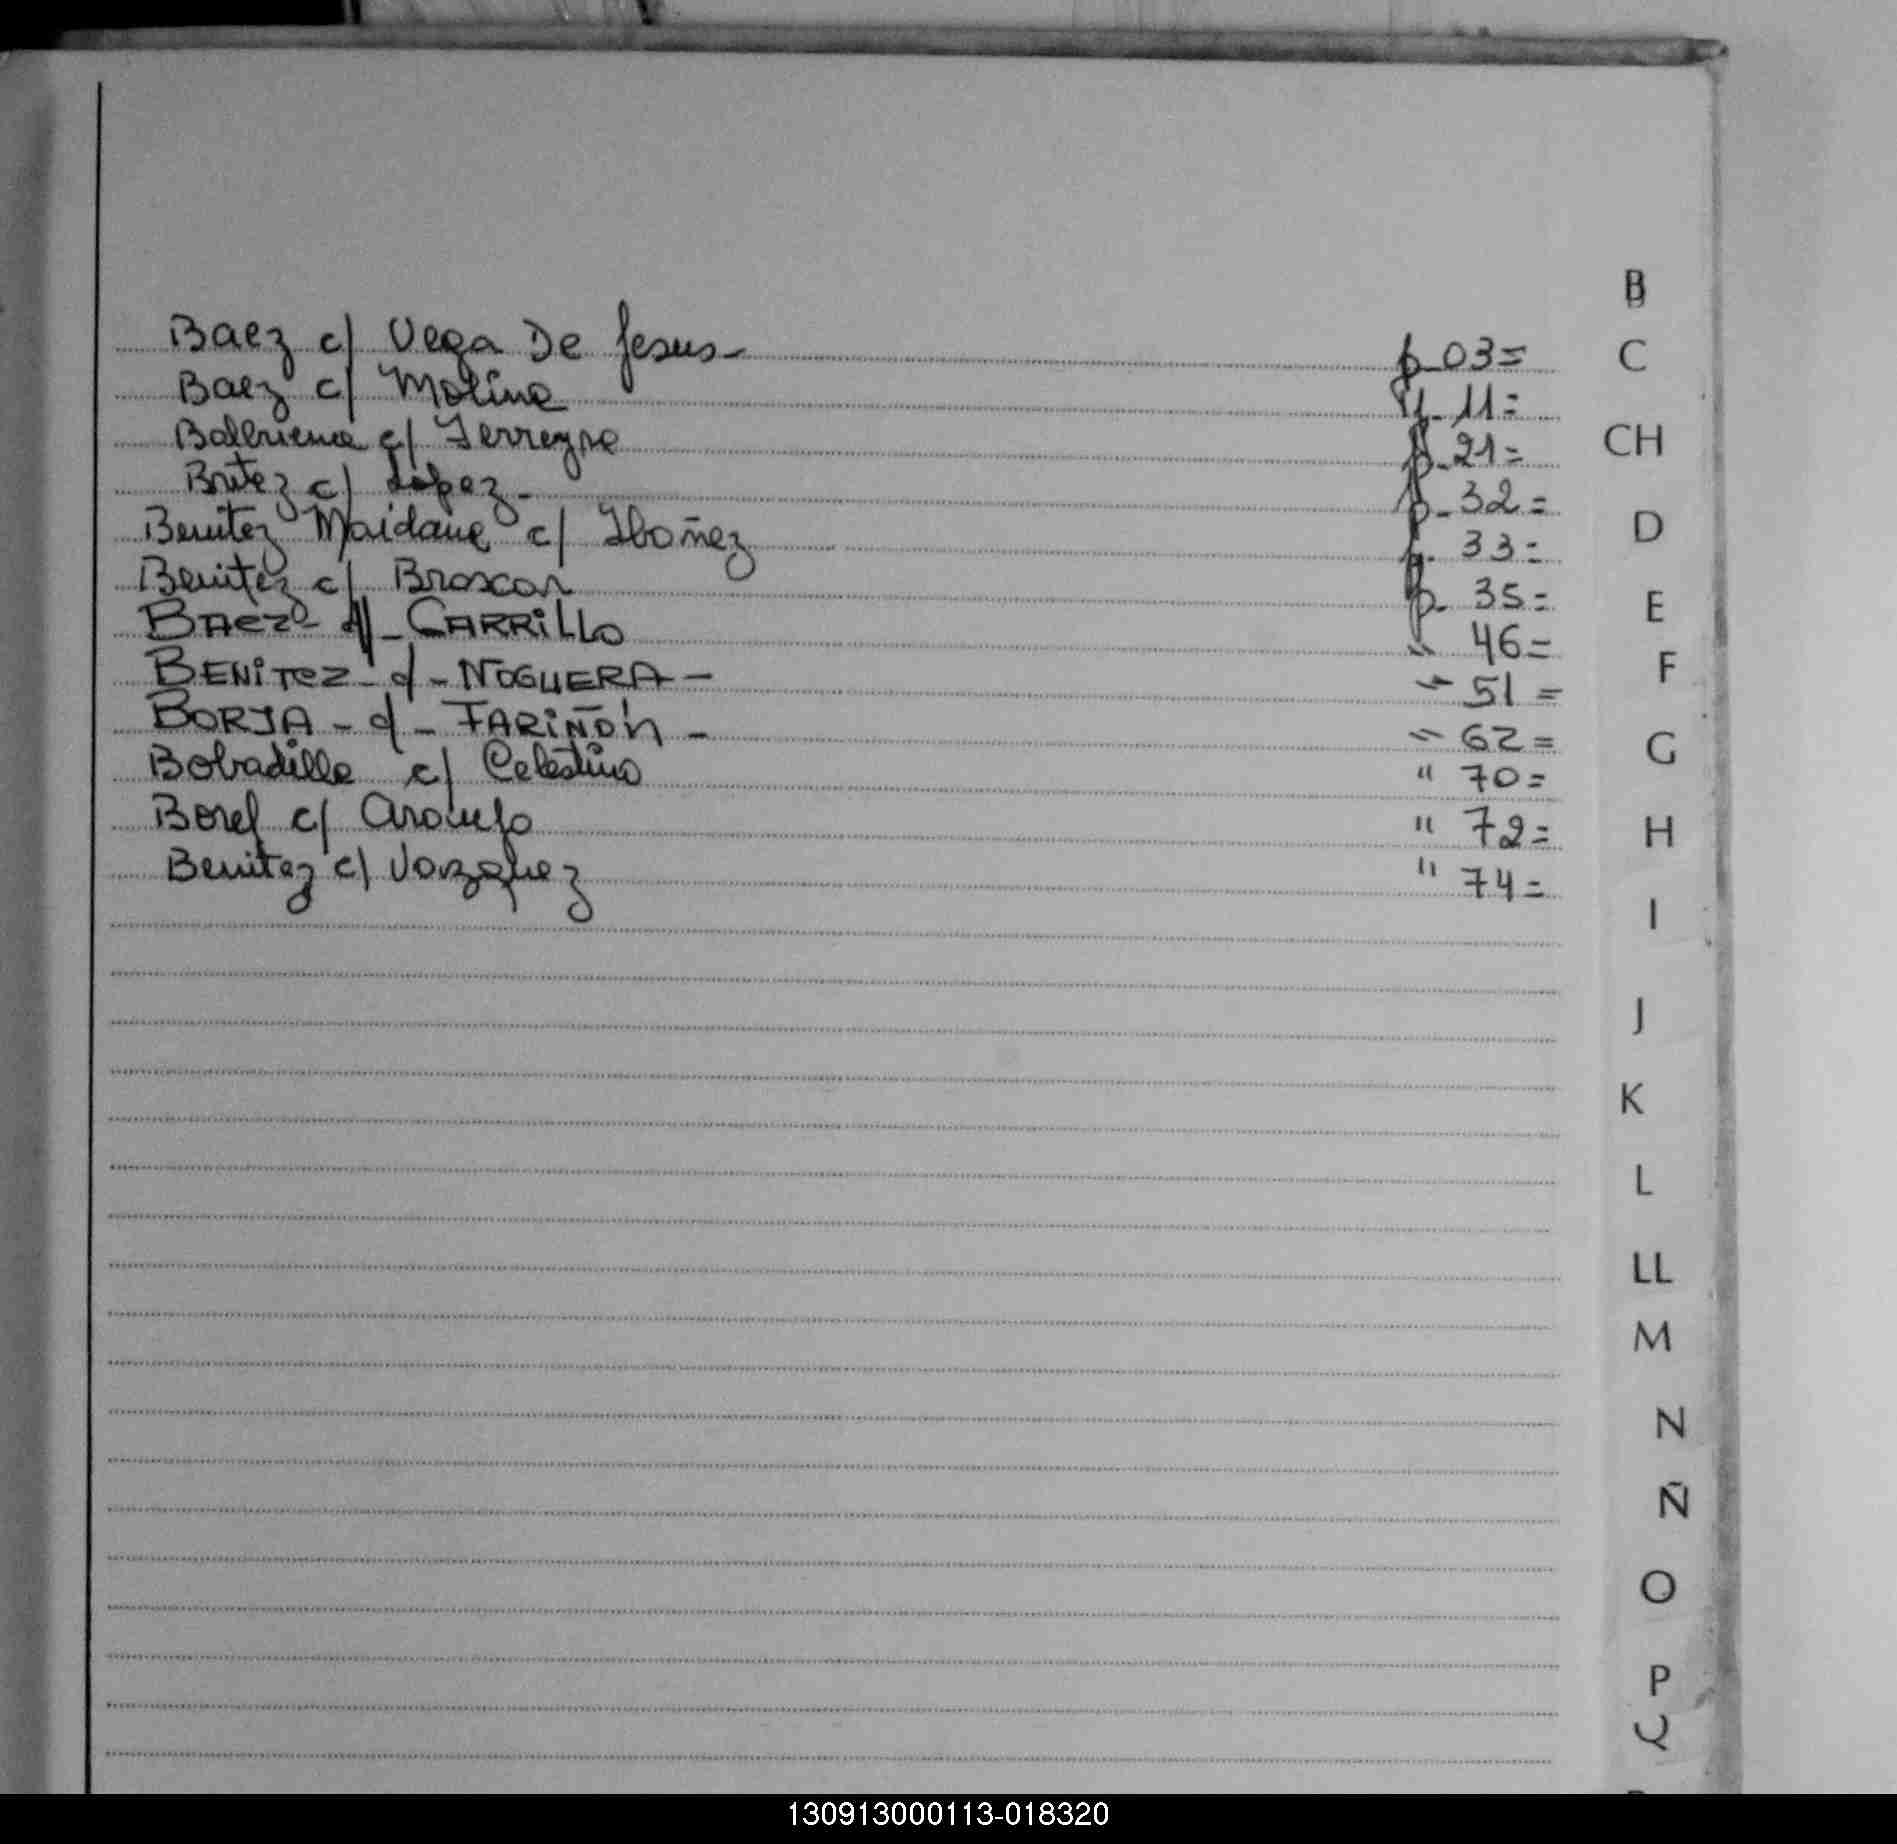 B
Baez c/ Vega De Jesus- p-03=
C
Baez c/ Molina p. 11=
Balbuena c/ Ferreyra p-21=
CH
Britez c/ Lopez- p-32=
Benitez Maidana c/ Ibañez p. 33=
D
Benitez c/ p. 35=
BAEZ - c/ - CARRILLO " 46=
E
BENITEZ - c/ - NOGUERA - " 51=
F
BORJA - c/ - FARIÑON - " 62=
G
Bobadilla c/ Celestino " 70=
Boref c/ Araujo " 72=
H
Benitez c/ Vazquez " 74=
I
J
K
L
LL
M
N
Ñ
O
P
Q
130913000113-018320